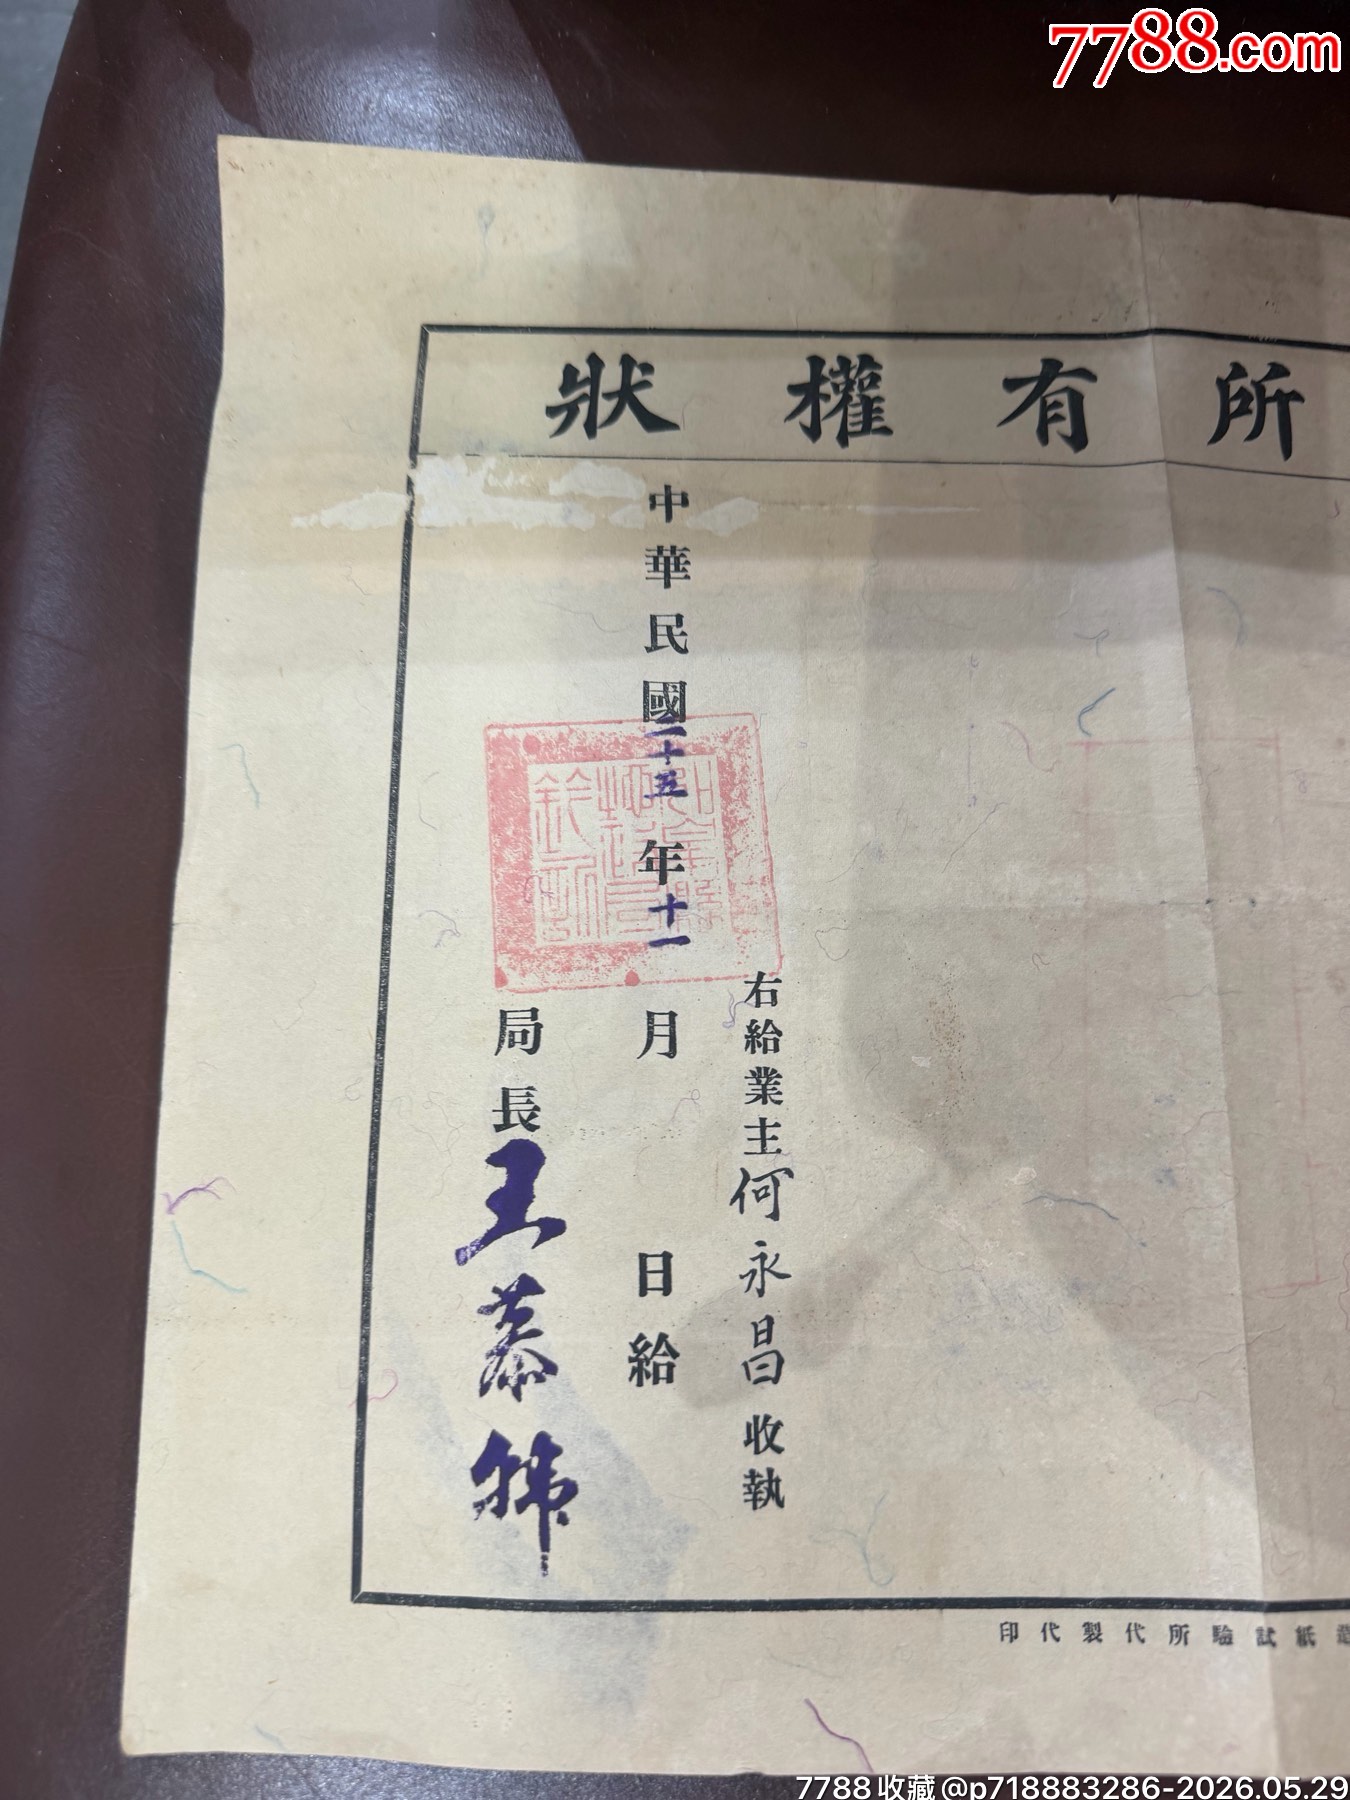 7788.com
所有權狀
右給業主何永昌收執
中華民國二十五年十一月 日給
局長王慕
紙試驗所代製代印
7788收藏@p718883286-2026.05.29